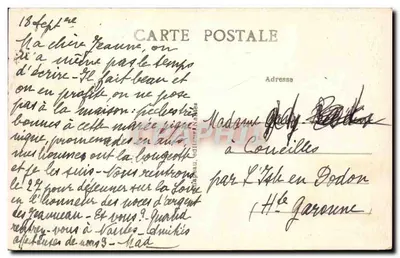 18 Septbre
CARTE POSTALE
Ma chère Jeanne, on
n'a même pas le temps
d'écrire - Il fait beau et
on en profite, on ne pose
pas à la maison:
bonnes à cette marée, pique
nique, promenades en auto,
et je les suis - Nous rentrons
le 27 pour déjeuner sur la Loire
en l'honneur des noces d'argent
des - Et vous? Quand
rentrez-vous à Nantes - Amitiés
affectueuses de nous 3 - Mad
Adresse
Madame
à Coueilles
par L'Isle en Dodon
(Hte Garonne